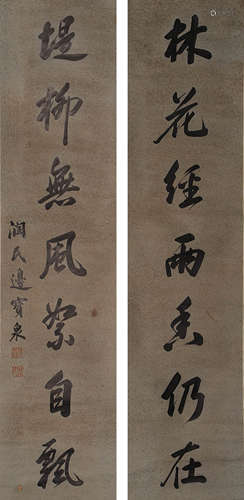 林花經雨香仍在
堤柳無風絮自飄
潤民邊寶泉